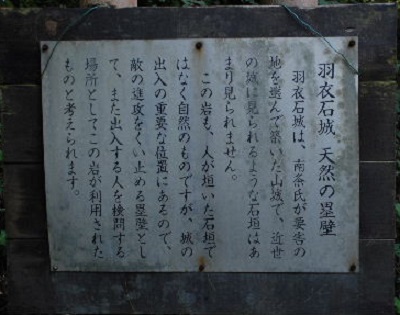 羽衣石城 天然の塁壁
羽衣石城は、南条氏が要害の
地を選んで築いた山城で、近世
の城に見られるような石垣はあ
まり見られません。
この岩も、人が垣いた石垣で
はなく自然のものですが、城の
出入の重要な位置にあるので
敵の進攻をくい止める塁壁とし
て、また出入する人を検問する
場所としてこの岩が利用された
ものと考えられます。